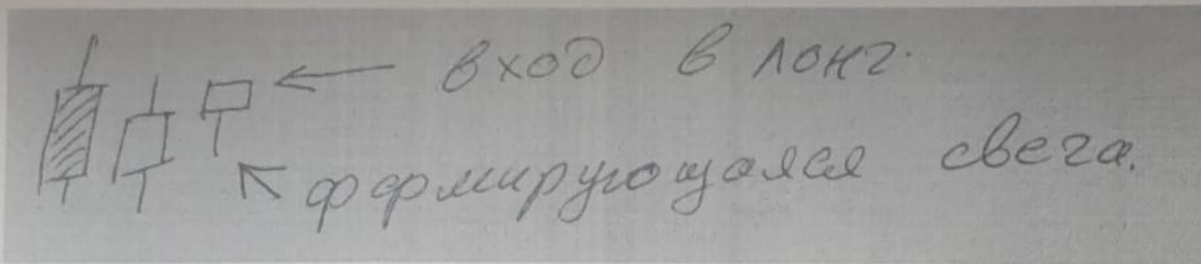 вход в лонг.
формирующаяся свеча.